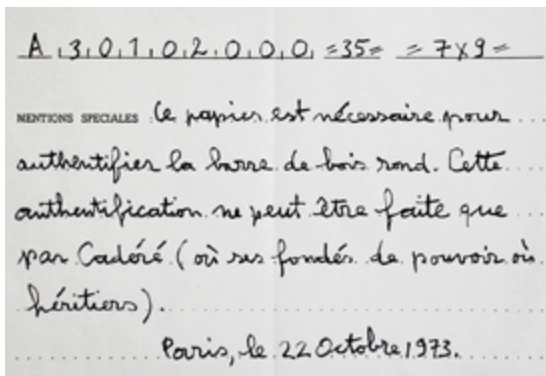 A 3 0 1 0 2 0 0 0 =35= = 7x9=
MENTIONS SPECIALES : Ce papier est nécessaire pour
authentifier la barre de bois rond. Cette
authentification ne peut être faite que
par Cadéré (où ses fondés de pouvoir où
héritiers).
Paris, le 22 Octobre 1973.